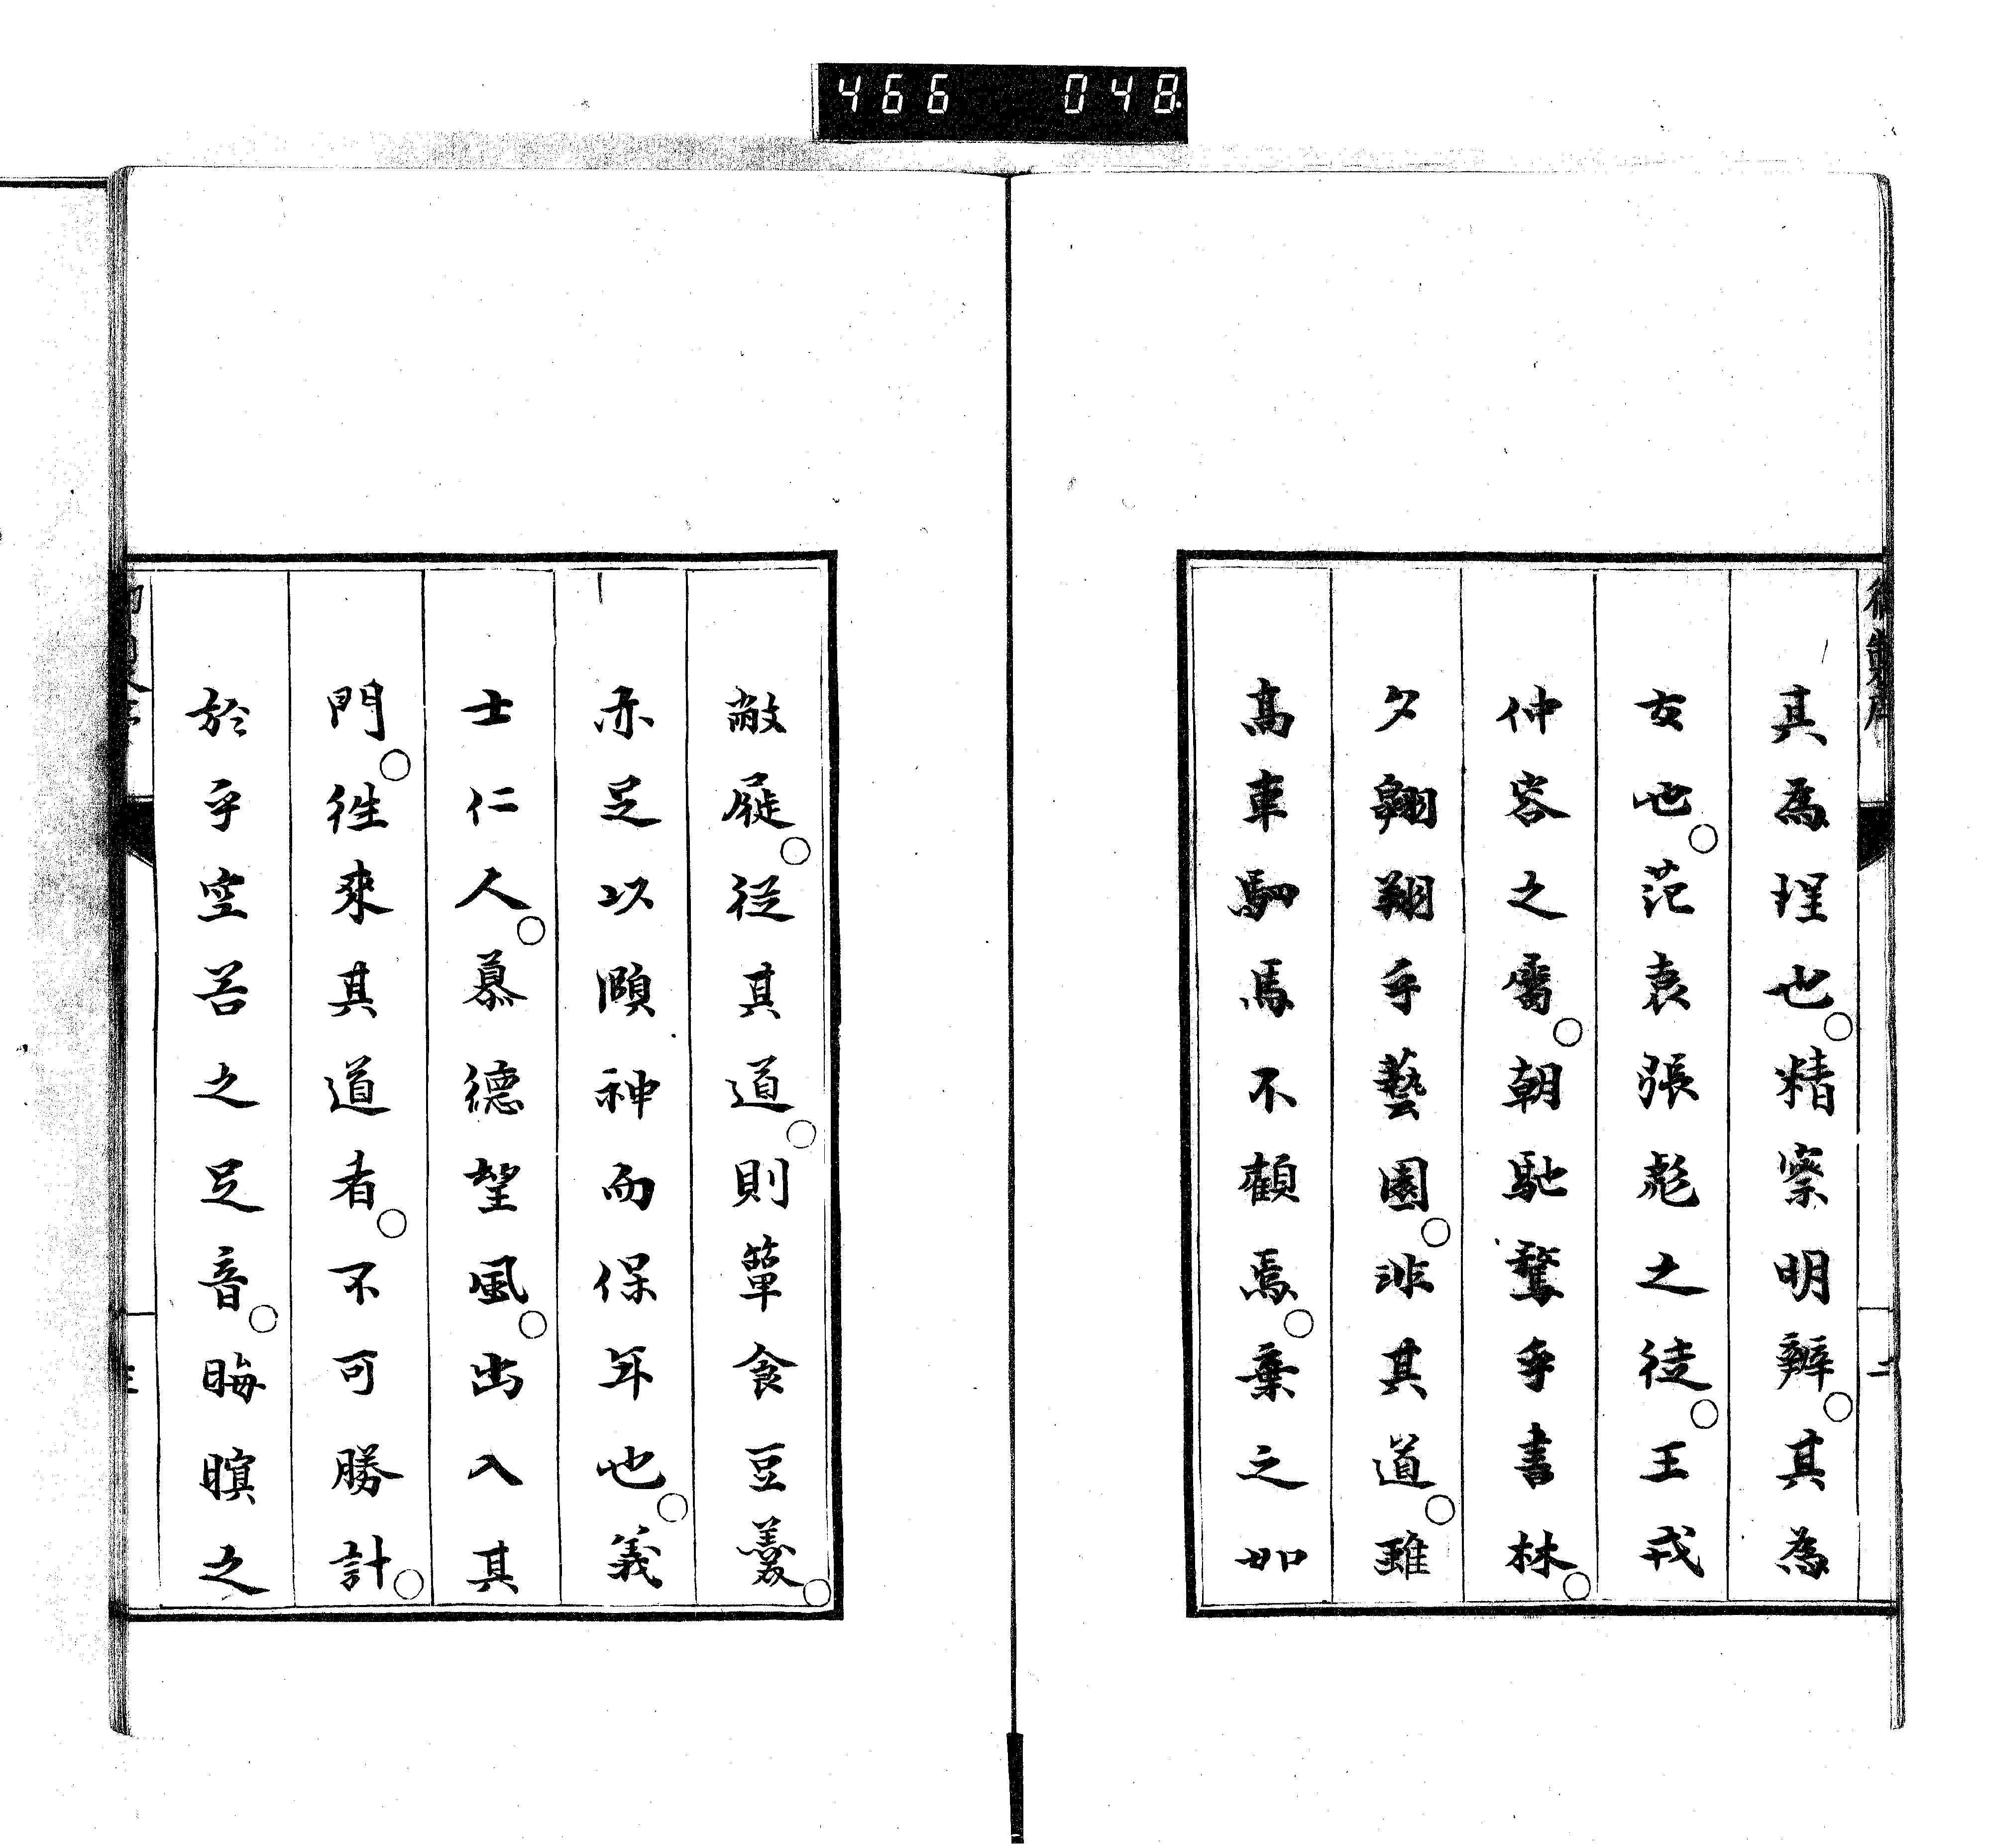 466 048
其為理也○精察明辨○其為
友也○范袁張彪之徒○王戎
仲容之儔○朝馳騖乎書林○
夕翱翔乎藝園○非其道○雖
高車駟馬不顧焉○棄之如
敝屣○從其道○則簞食豆羹○
亦足以頤神而保年也○義
士仁人○慕德望風○出入其
門○往來其道者○不可勝計○
於乎空谷之足音○晦暝之